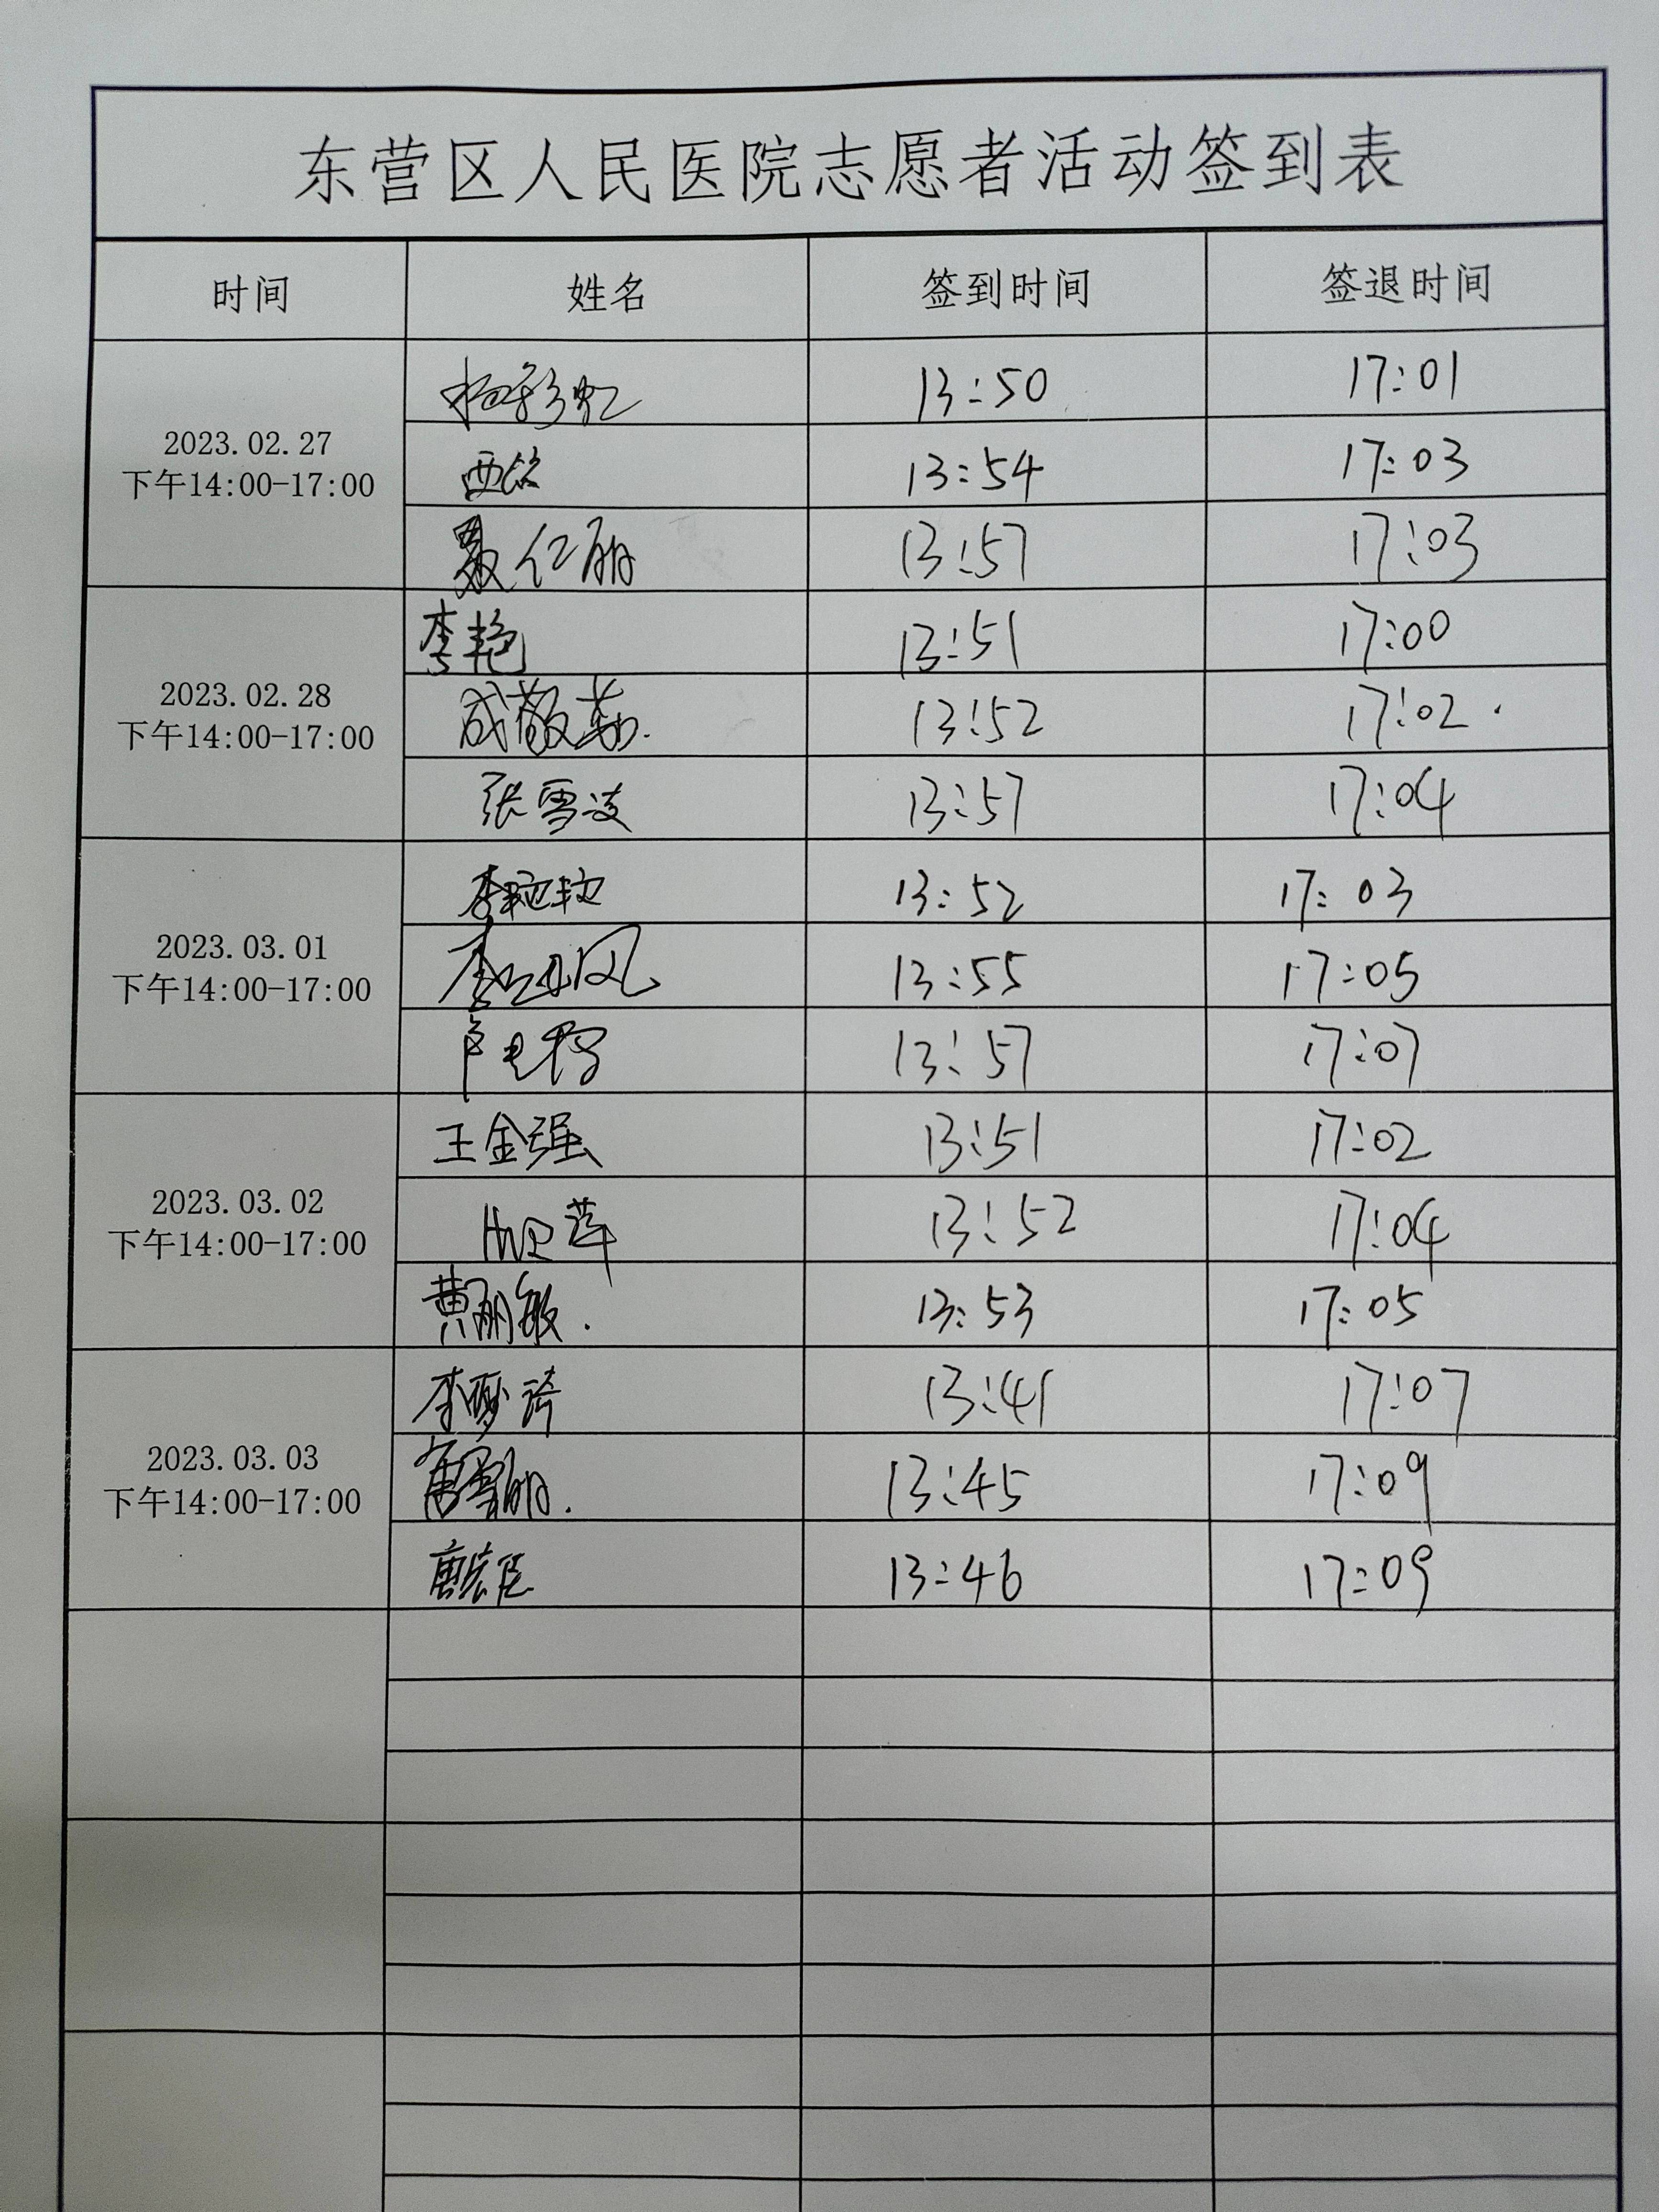 东营区人民医院志愿者活动签到表
时间 姓名 签到时间 签退时间
2023.02.27
下午14:00-17:00
杨彩虹 13:50 17:01
西铭 13:54 17:03
聂仁丽 13:57 17:03
2023.02.28
下午14:00-17:00
李艳 13:51 17:00
成敬茹. 13:52 17:02
张雪凌 13:57 17:04
2023.03.01
下午14:00-17:00
李艳艳 13:52 17:03
李 风 13:55 17:05
13:57 17:07
2023.03.02
下午14:00-17:00
王金强 13:51 17:02
莲 13:52 17:04
黄丽敏. 13:53 17:05
2023.03.03
下午14:00-17:00
李梦诗 13:41 17:07
13:45 17:09
唐宏臣 13:46 17:09